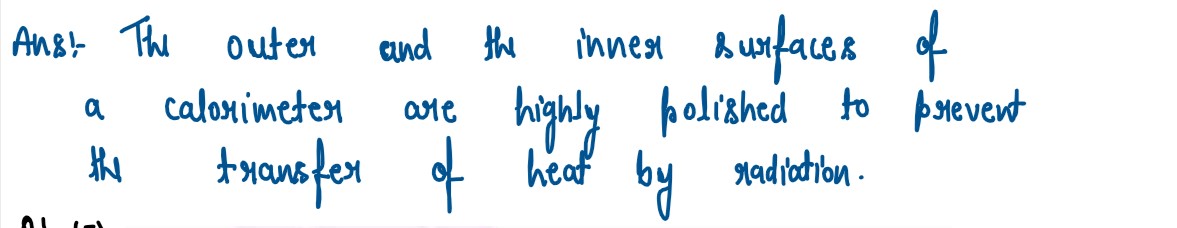 Ans:- The outer and the inner surfaces of
a calorimeter are highly polished to prevent
the transfer of heat by radiation.